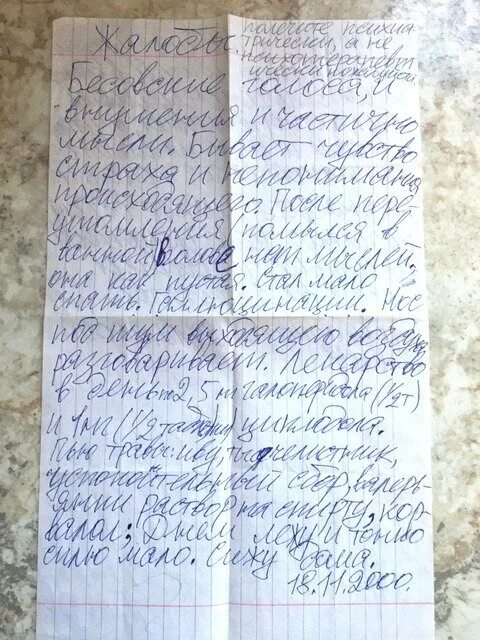 Жалобы.
полечите психиа
трически, а не
психотерапевт
ически пожалуйста
Бесовские голоса, и
внушения и частично
мысли. Бывает чувство
страха и непонимания
происходящего. После пере
утомления помылся в
ванной в голове нет мыслей,
она как пустая. Стал мало
спать. Галлюцинации. Нос
под шум выходящего воздуха
разговаривает. Лекарство
в день 2,5 мг галопередола (1/2т)
и 1мг (1/2 таблетки) циклодола.
Пью травы: иву, пустырник,
успокоительный сбор, валерь-
янки раствор на спирту, кор-
валол; Днем лежу и только
сплю мало. Сижу дома.
18.11.2000.